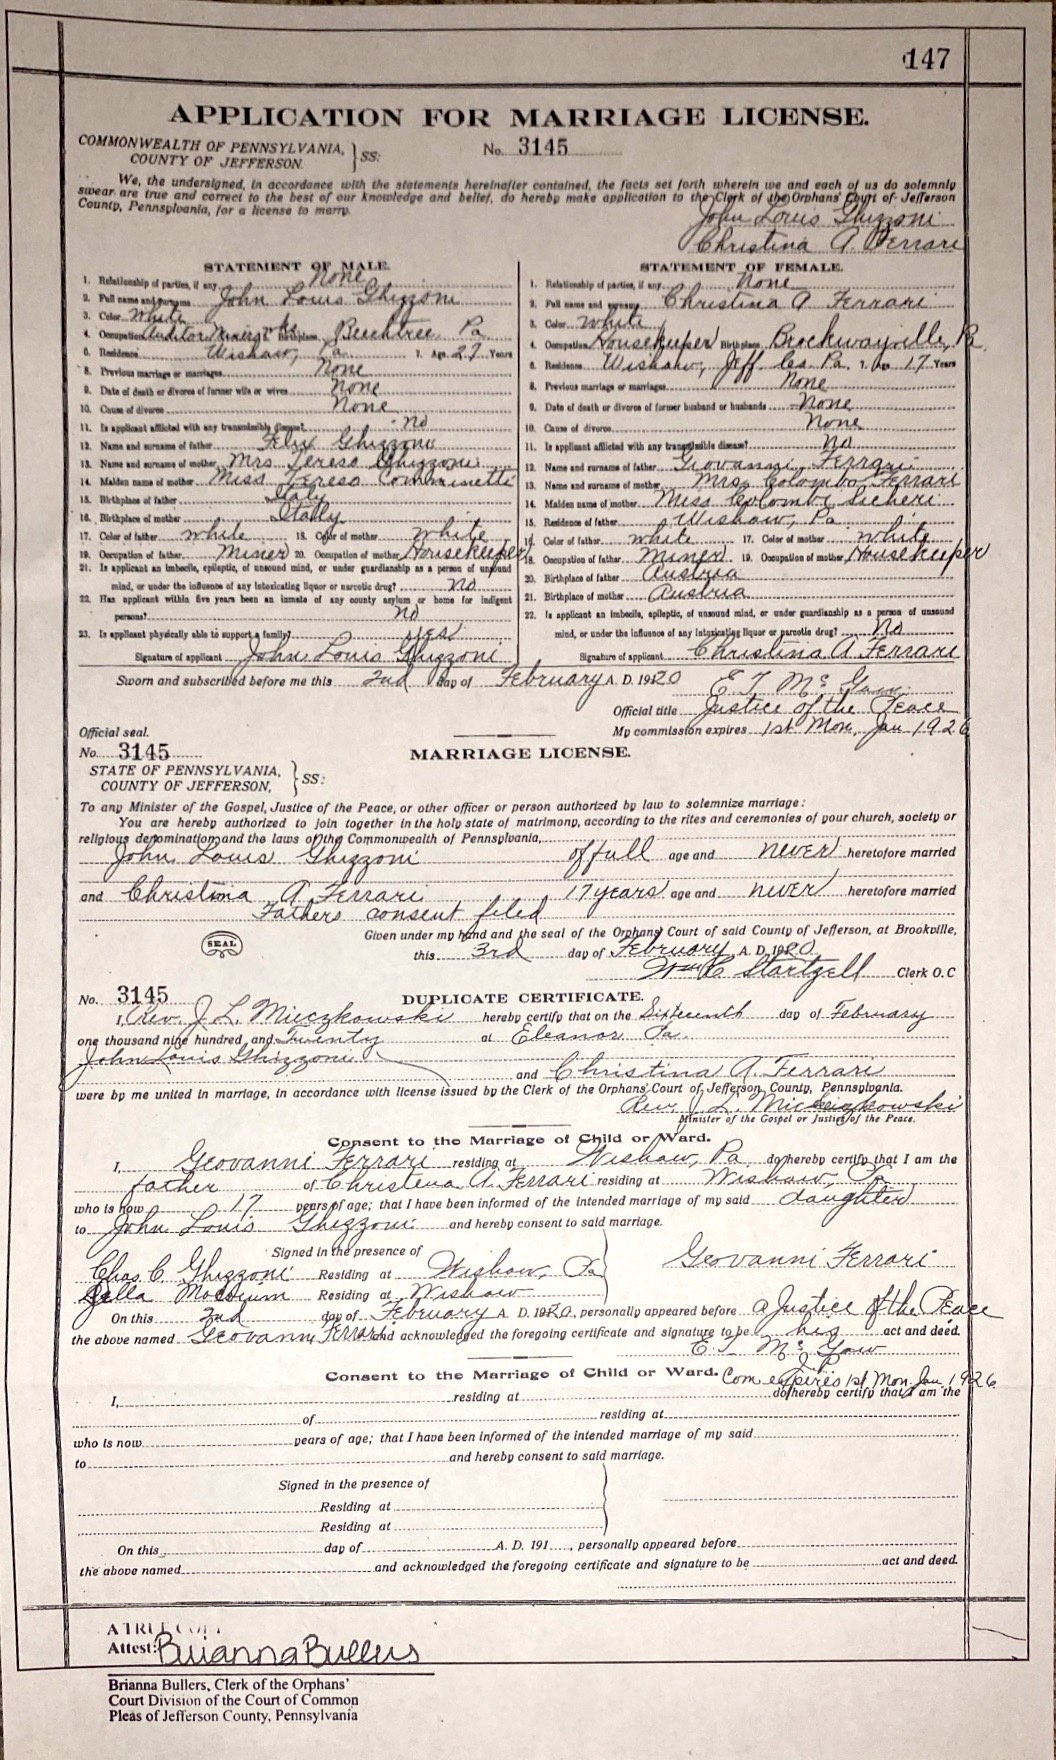 147
APPLICATION FOR MARRIAGE LICENSE.
COMMONWEALTH OF PENNSYLVANIA,
COUNTY OF JEFFERSON. } SS:
No. 3145
We, the undersigned, in accordance with the statements hereinafter contained, the facts set forth wherein we and each of us do solemnly
swear are true and correct to the best of our knowledge and belief, do hereby make application to the Clerk of the Orphans' Court of Jefferson
County, Pennsylvania, for a license to marry.
John Louis Ghizzoni
Christina A. Ferrari
STATEMENT OF MALE.
1. Relationship of parties, if any None
2. Full name and surname John Louis Ghizzoni
3. Color White
4. Occupation Auditor Birthplace Beechtree Pa
6. Residence Wishaw, Pa 7. Age 27 Years
8. Previous marriage or marriages None
9. Date of death or divorce of former wife or wives None
10. Cause of divorce None
11. Is applicant afflicted with any transmissible disease? No
12. Name and surname of father Felix Ghizzoni
13. Name and surname of mother Mrs Tereso Ghizzoni
14. Maiden name of mother Miss Tereso Comminetti
15. Birthplace of father Italy
16. Birthplace of mother Itally
17. Color of father White 18. Color of mother White
19. Occupation of father Miner 20. Occupation of mother Housekeeper
21. Is applicant an imbecile, epileptic, of unsound mind, or under guardianship as a person of unsound
mind, or under the influence of any intoxicating liquor or narcotic drug? No
22. Has applicant within five years been an inmate of any county asylum or home for indigent
persons? No
23. Is applicant physically able to support a family? yes
Signature of applicant John Louis Ghizzoni
STATEMENT OF FEMALE.
1. Relationship of parties, if any None
2. Full name and surname Christina A Ferrari
3. Color White
4. Occupation Housekeeper Birthplace Brockwayville, Pa.
6. Residence Wishaw, Jeff Co Pa. 7. Age 17 Years
8. Previous marriage or marriages None
9. Date of death or divorce of former husband or husbands None
10. Cause of divorce None
11. Is applicant afflicted with any transmissible disease? No
12. Name and surname of father Giovanni Ferrari
13. Name and surname of mother Mrs Colombo Ferrari
14. Maiden name of mother Miss Colombi Sicheri
15. Residence of father Wishaw, Pa
16. Color of father White 17. Color of mother White
18. Occupation of father Miner 19. Occupation of mother Housekeeper
20. Birthplace of father Austria
21. Birthplace of mother Austria
22. Is applicant an imbecile, epileptic, of unsound mind, or under guardianship as a person of unsound
mind, or under the influence of any intoxicating liquor or narcotic drug? No
Signature of applicant Christina A Ferrari
Sworn and subscribed before me this 2nd day of February A. D. 1920 E T McGaw
Official title Justice of the Peace
My commission expires 1st Mon, Jan 1926
Official seal.
No. 3145
MARRIAGE LICENSE.
STATE OF PENNSYLVANIA,
COUNTY OF JEFFERSON, } SS:
To any Minister of the Gospel, Justice of the Peace, or other officer or person authorized by law to solemnize marriage:
You are hereby authorized to join together in the holy state of matrimony, according to the rites and ceremonies of your church, society or
religious denomination and the laws of the Commonwealth of Pennsylvania,
John Louis Ghizzoni of full age and never heretofore married
and Christina A Ferrari 17 years age and never heretofore married
Fathers consent filed
Given under my hand and the seal of the Orphans' Court of said County of Jefferson, at Brookville,
SEAL
this 3rd day of February A. D. 1920
Wm C Startzell Clerk O.C
No. 3145
DUPLICATE CERTIFICATE.
I, Rev. J. L. Mieczkowski hereby certify that on the Sixteenth day of February
one thousand nine hundred and Twenty at Eleanor Pa.
John Louis Ghizzoni and Christina A. Ferrari
were by me united in marriage, in accordance with license issued by the Clerk of the Orphans' Court of Jefferson County, Pennsylvania.
Rev. J. L. Mieczkowski
Minister of the Gospel or Justice of the Peace.
Consent to the Marriage of Child or Ward.
I, Geovanni Ferrari residing at Wishaw, Pa do hereby certify that I am the
father of Christena A. Ferrari residing at Wishaw, Pa
who is now 17 years of age; that I have been informed of the intended marriage of my said daughter
to John Louis Ghizzoni and hereby consent to said marriage.
Signed in the presence of
Geovanni Ferrari
Chas. C. Ghizzoni Residing at Wishaw, Pa
Residing at Wishaw
On this 2nd day of February A. D. 1920, personally appeared before a Justice of the Peace
the above named Geovanni Ferrari and acknowledged the foregoing certificate and signature to be his act and deed.
E T McGaw
J P
Com expires 1st Mon Jan 1926
Consent to the Marriage of Child or Ward.
I, residing at do hereby certify that I am the
of residing at
who is now years of age; that I have been informed of the intended marriage of my said
to and hereby consent to said marriage.
Signed in the presence of
Residing at
Residing at
On this day of A. D. 191 , personally appeared before
the above named and acknowledged the foregoing certificate and signature to be act and deed.
A TRUE COPY
Attest: Brianna Bullers
Brianna Bullers, Clerk of the Orphans'
Court Division of the Court of Common
Pleas of Jefferson County, Pennsylvania